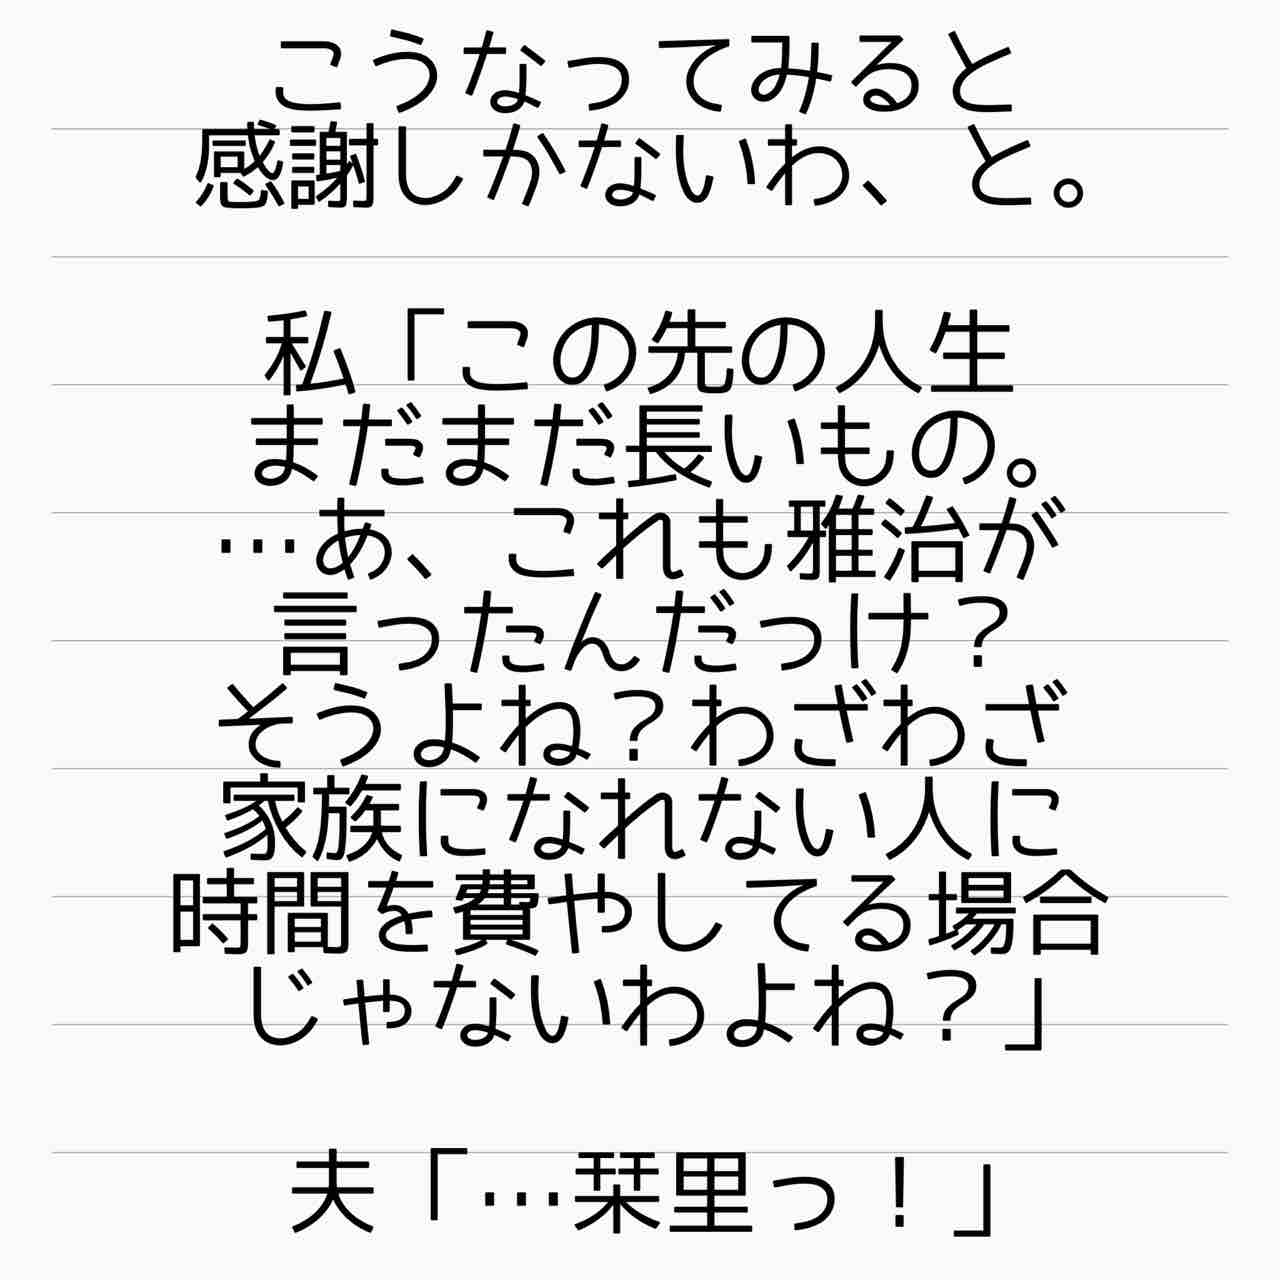 こうなってみると
感謝しかないわ、と。
私「この先の人生
まだまだ長いもの。
…あ、これも雅治が
言ったんだっけ？
そうよね？わざわざ
家族になれない人に
時間を費やしてる場合
じゃないわよね？」
夫「…栞里っ！」